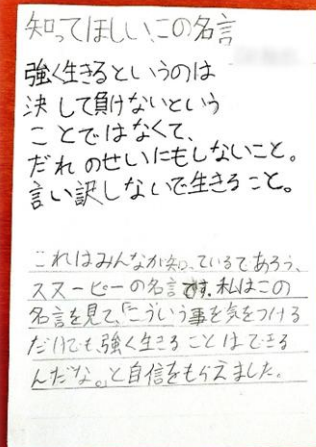 知ってほしい、この名言
強く生きるというのは
決して負けないという
ことではなくて、
だれのせいにもしないこと。
言い訳しないで生きること。
これはみんなが知っているであろう、
スヌーピーの名言です。私はこの
名言を見て、「こういう事を気をつける
だけでも、強く生きることはできる
んだな。」と自信をもらえました。